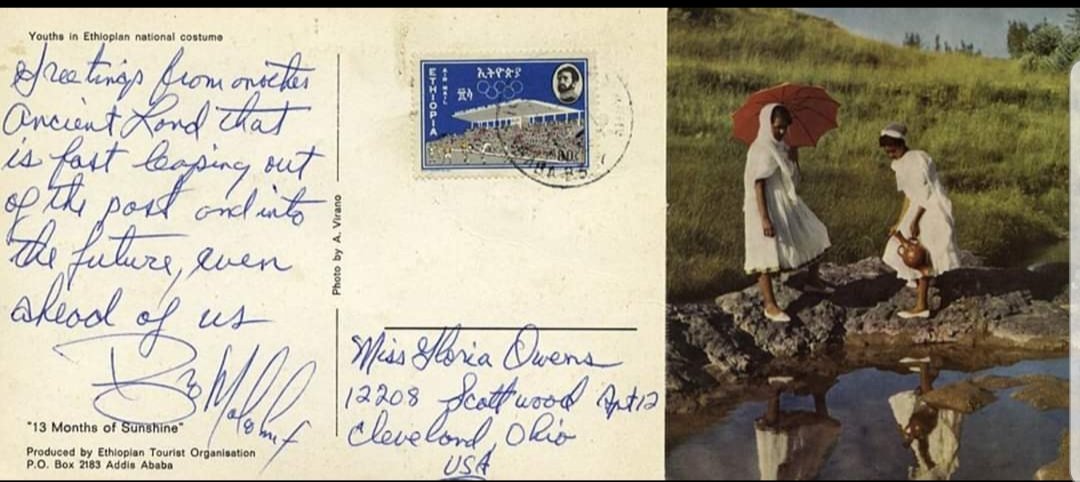 Youths in Ethiopian national costume
Greetings from another
Ancient Land that
is fast leaping out
of the past and into
the future, even
ahead of us
Bro Malcolm X
"13 Months of Sunshine"
Produced by Ethiopian Tourist Organisation
P.O. Box 2183 Addis Ababa
Photo by A. Virano
ETHIOPIA
AIR MAIL
ኢትዮጵያ
Miss Gloria Owens
12208 Scottwood Apt 12
Cleveland, Ohio
USA